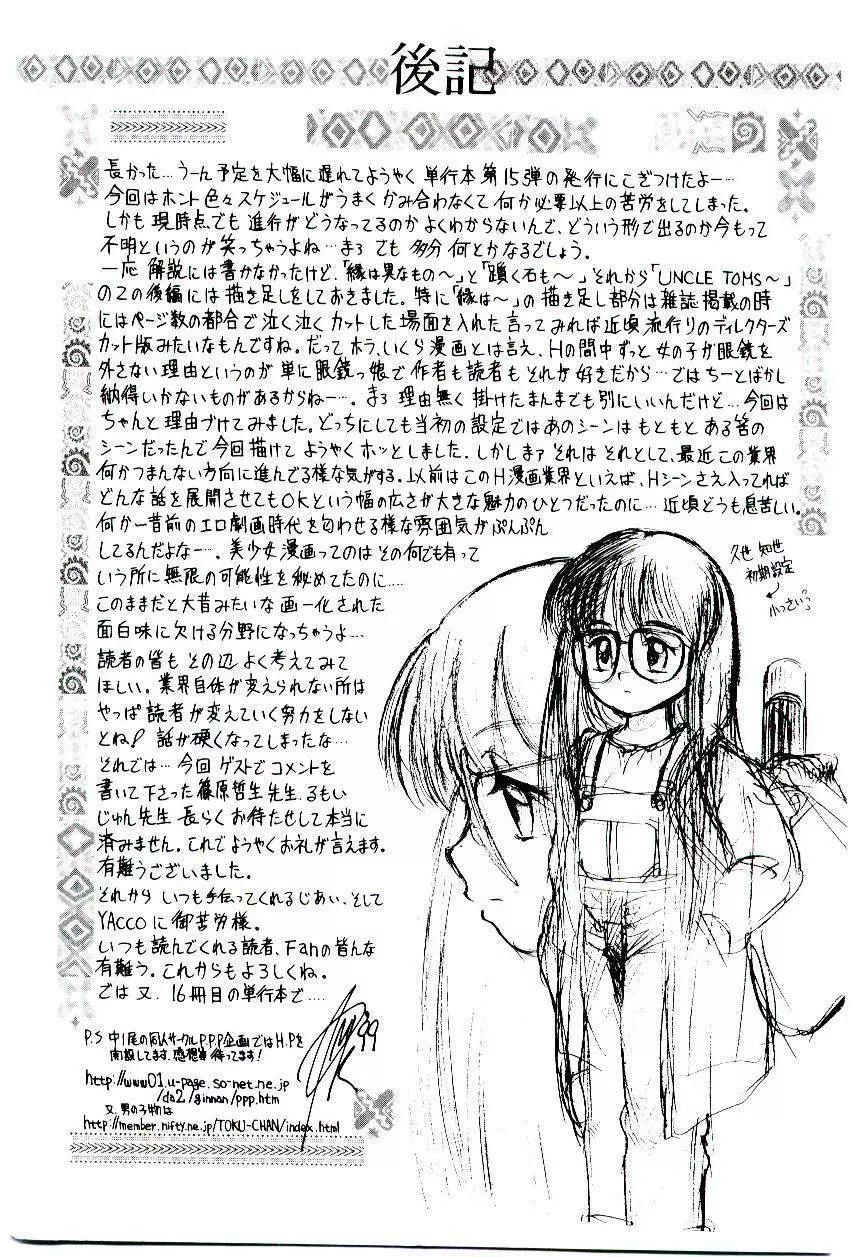 後記
長かった…うーん予定を大幅に遅れてようやく単行本第15弾の発行にこぎつけたよー…
今回はホント色々スケジュールがうまくかみ合わなくて何か必要以上の苦労をしてしまった。
しかも現時点でも進行がどうなってるのかよくわからないんで、どういう形で出るのか今もって
不明というのが笑っちゃうよね…まぁでも多分何とかなるでしょう。
一応解説には書かなかったけど、「縁は異なもの〜」と「躓く石も〜」それから「UNCLE TOMS〜」
のこの後編には描き足しをしておきました。特に「縁は〜」の描き足し部分は雑誌掲載の時
にはページ数の都合で泣く泣くカットした場面を入れた言ってみれば近頃流行りのディレクターズ
カット版みたいなもんですね。だってホラ、いくら漫画とは言え、Hの間中ずっと女の子が眼鏡を
外さない理由というのが単に眼鏡っ娘で作者も読者もそれが好きだから…ではちーとばかし
納得いかないものがあるからねー…。まぁ理由無く掛けたまんまでも別にいいんだけど…今回は
ちゃんと理由づけてみました。どっちにしても当初の設定ではあのシーンはもともとある筈の
シーンだったんで今回描けてようやくホッとしました。しかしまァそれはそれとして、最近この業界
何かつまんない方向に進んでる様な気がする。以前はこのH漫画業界といえば、Hシーンさえ入ってれば
どんな話を展開させてもOKという幅の広さが大きな魅力のひとつだったのに…近頃どうも息苦しい。
何か一昔前のエロ劇画時代を匂わせる様な雰囲気がぷんぷん
してるんだよなー…。美少女漫画ってのはその何でも有って
いう所に無限の可能性を秘めてたのに…
このままだと大昔みたいな画一化された
面白味に欠ける分野になっちゃうよ…
読者の皆もその辺よく考えてみて
ほしい。業界自体が変えられない所は
やっぱ読者が変えていく努力をしない
とね!話が硬くなってしまったな…
それでは…今回ゲストでコメントを
書いて下さった篠原哲生先生、るもい
じゅん先生長らくお待たせして本当に
済みません。これでようやくお礼が言えます。
有難うございました。
それからいつも手伝ってくれるじあい、そして
YACCOに御苦労様。
いつも読んでくれる読者、Fanの皆んな
有難う。これからもよろしくね。
では又、16冊目の単行本で…
久世 知世
初期設定
小っさいっ
'99
P.S 中1尾の同人サークルP.P.P企画ではH.Pを
開設してます。感想等待ってます!
http://www01.u-page.so-net.ne.jp
/da2/ginnan/ppp.htm
又、男の子物は
http://member.nifty.ne.jp/TOKU-CHAN/index.html